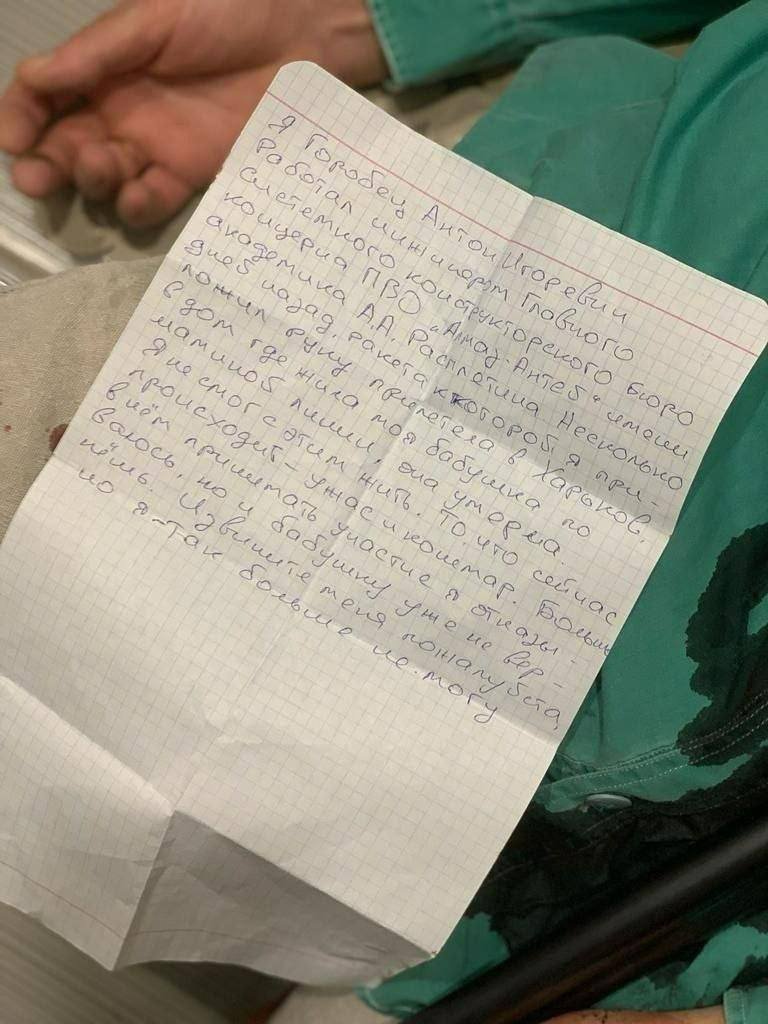 Я Горобец Антон Игоревич
Работал инжинером Главного
системного конструкторского бюро
концерна ПВО "Алмаз-Антей" имени
академика А.А. Расплетина Несколько
дней назад, ракета к которой я при-
ложил руку прилетела в Харьков.
в дом где жила моя бабушка по
маминой линии, она умерла.
Я не смог с этим жить. То, что сейчас
происходит - ужас и кошмар. Больше
в нём принимать участие я отказы-
ваюсь, но и бабушку уже не вер-
нёшь. Извините меня пожалуйста,
но я так больше не могу